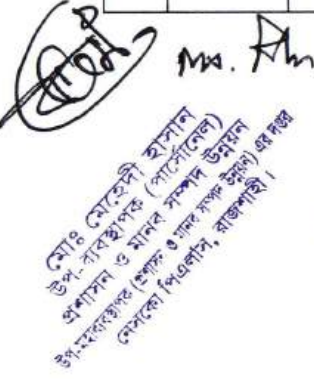 Md.
মোঃ মেহেদী হাসান
উপ-ব্যবস্থাপক (পার্সোনেল)
প্রশাসন ও মানব সম্পদ উন্নয়ন
উপ-মহাব্যবস্থাপক (প্রশাসন ও মানব সম্পদ উন্নয়ন) এর দপ্তর
নেসকো পিএলসি, রাজশাহী।